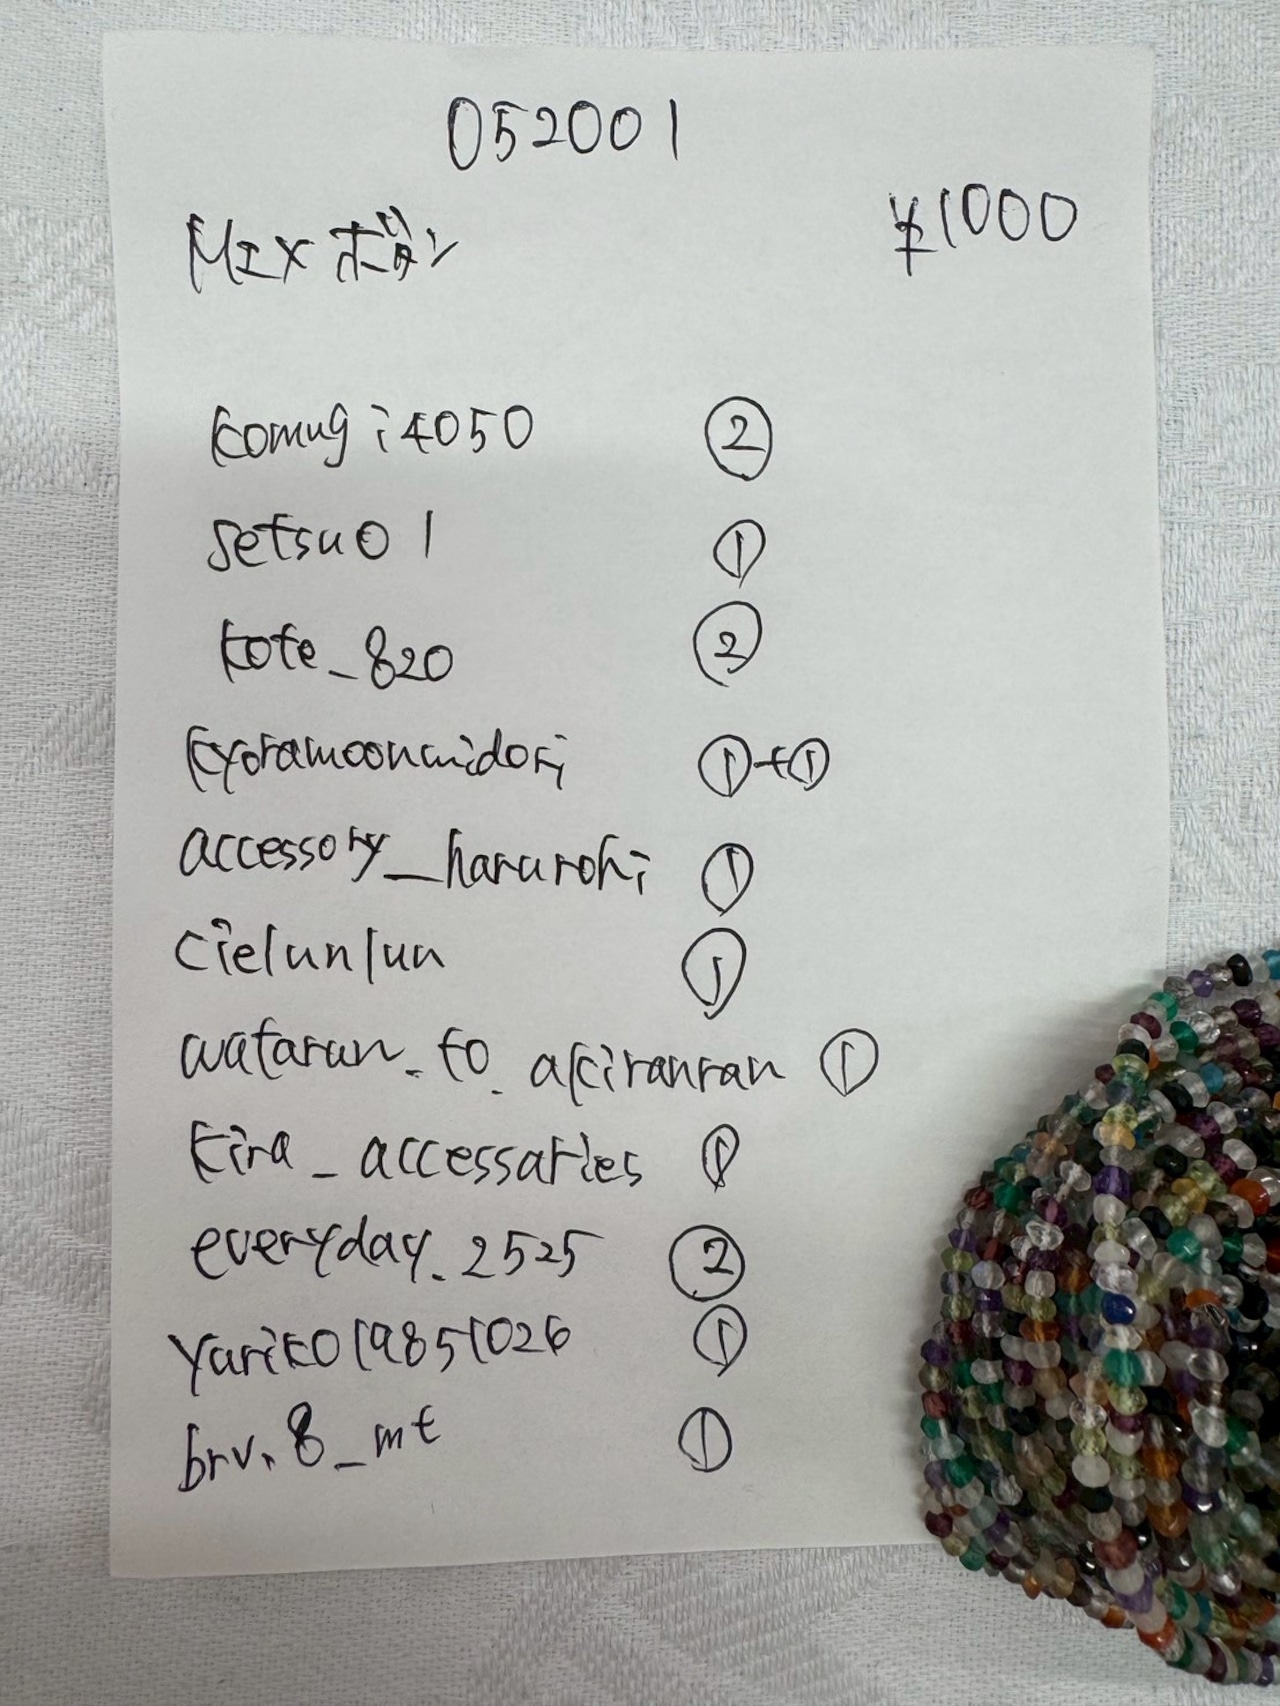 052001
MIXボタン ¥1000
komugi4050 ②
setsu01 ①
kote_820 ②
kyoramoonmidori ①+①
accessory_harurohi ①
cielunlun ①
watarun.to.akiranran ①
kira_accessaries ①
everyday.2525 ②
yariko19851026 ①
brv.8_mt ①